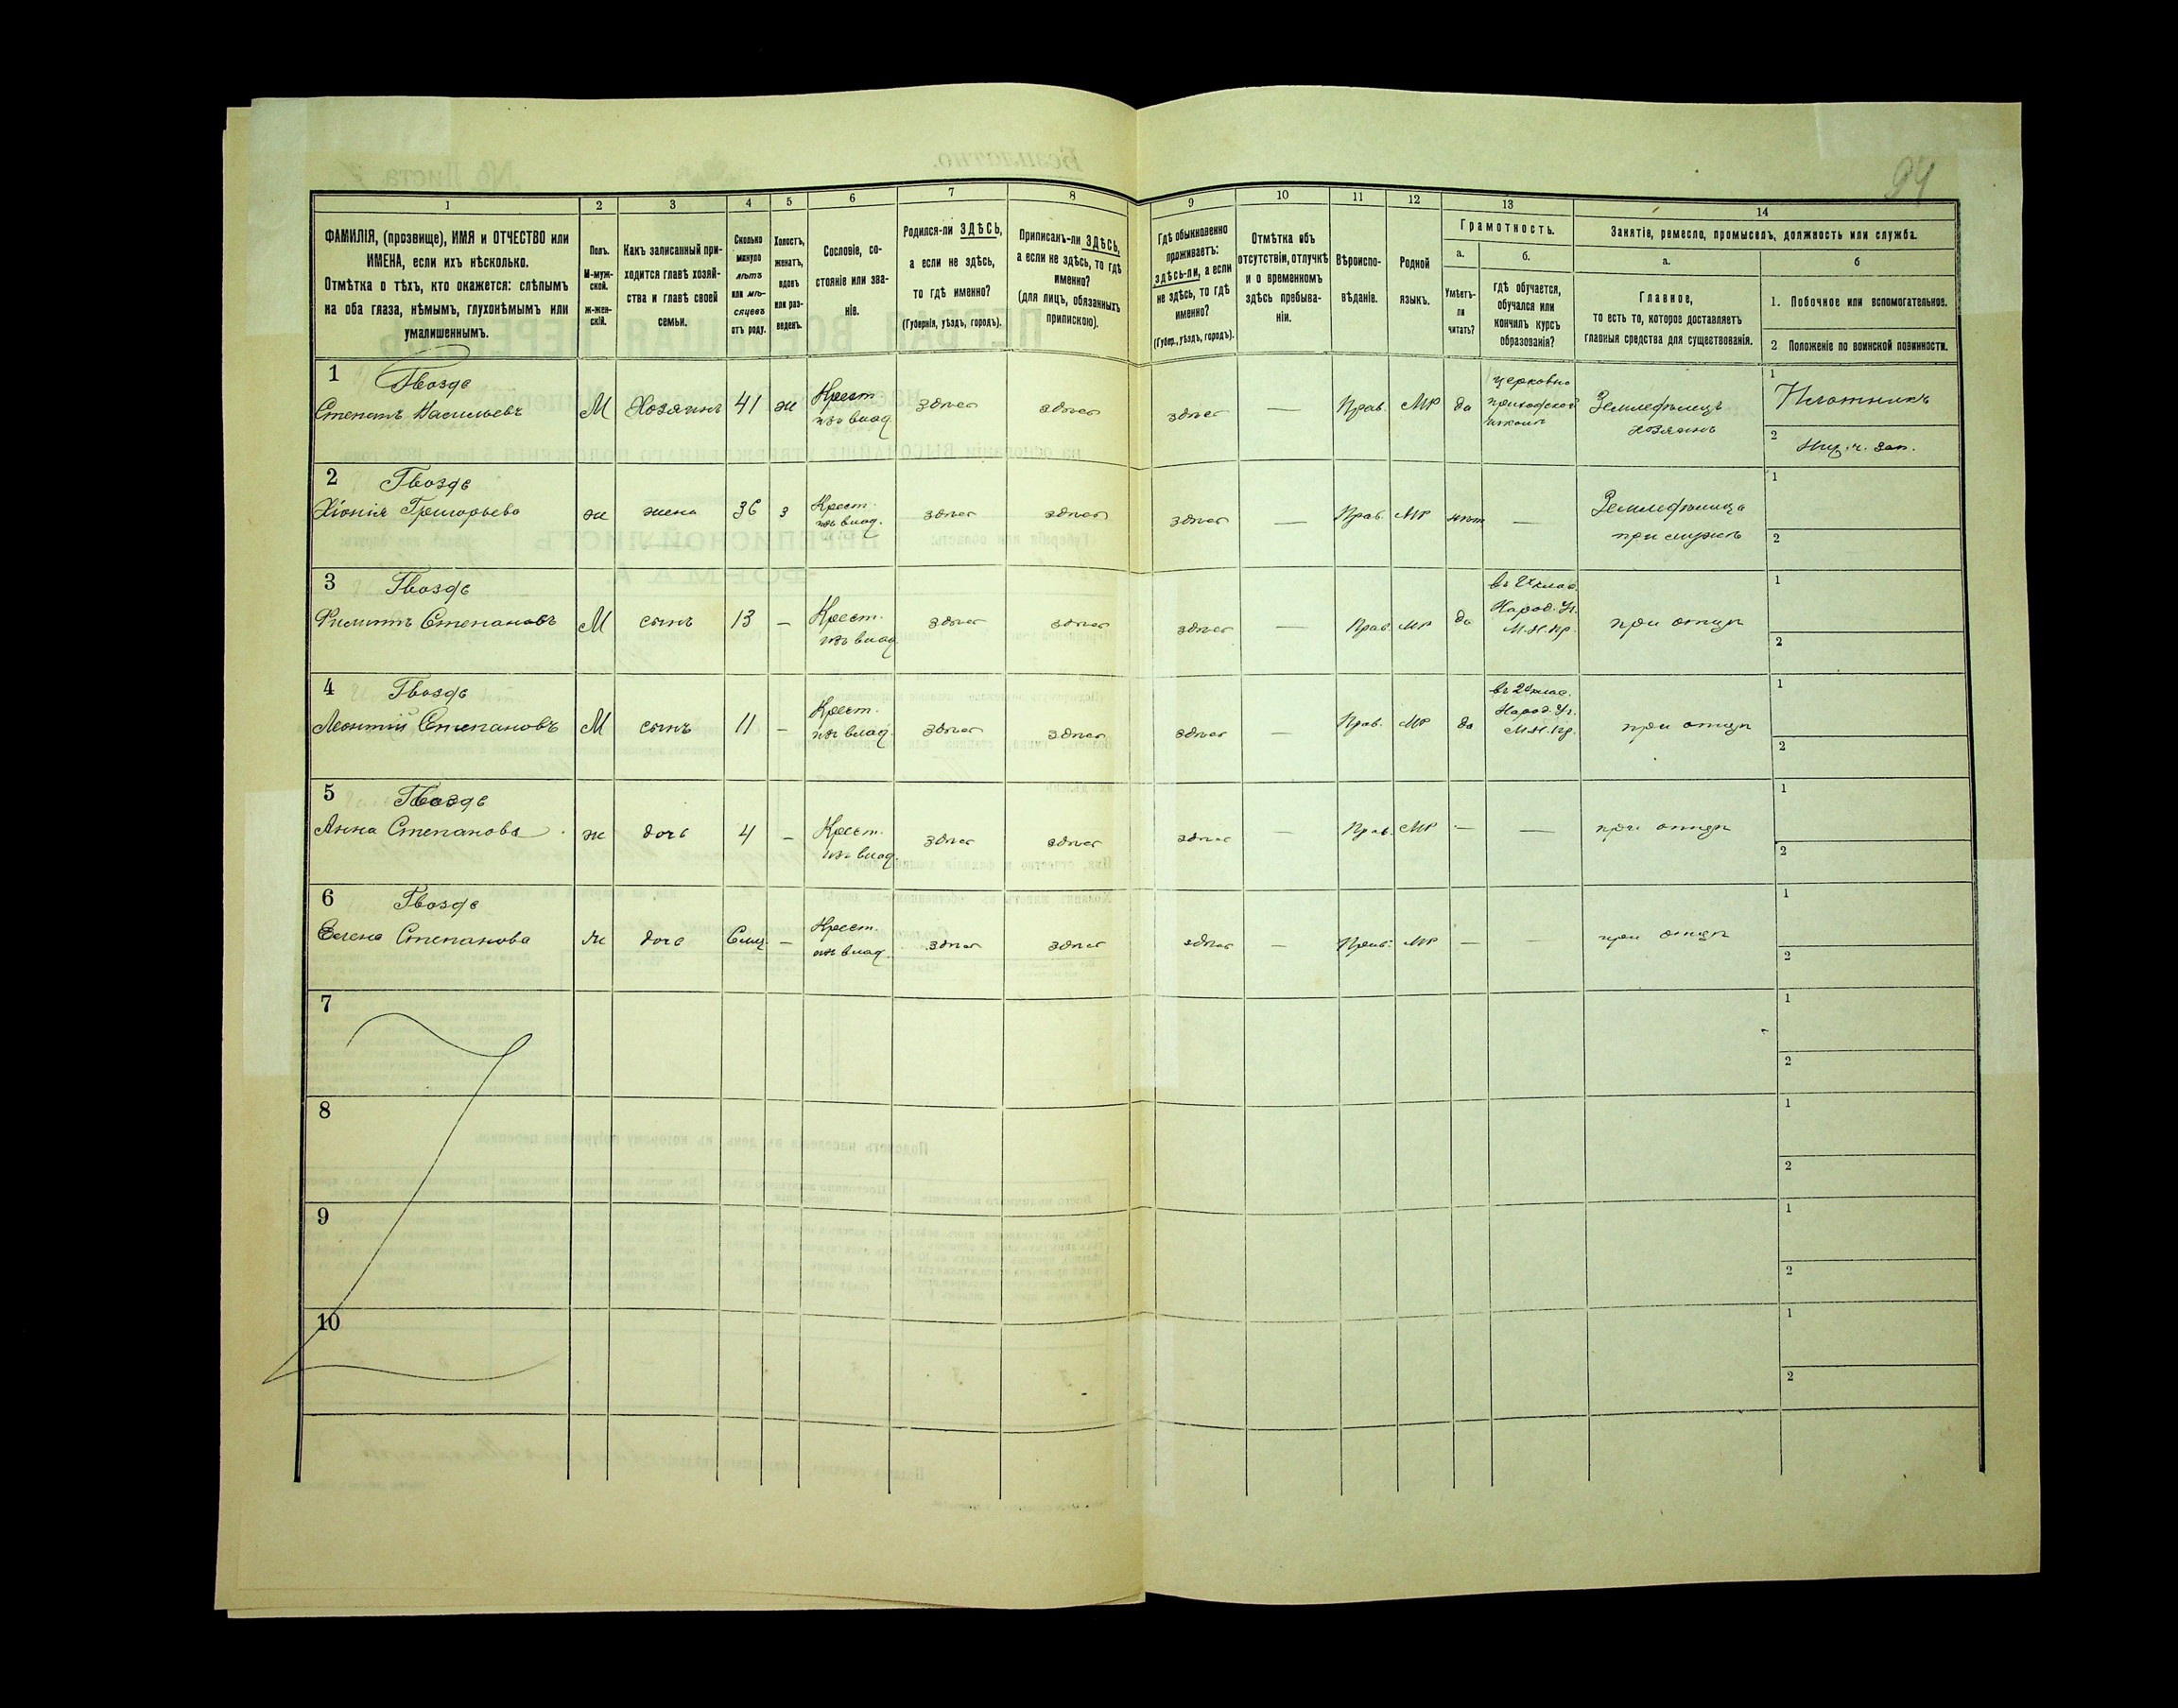 94
1
2
3
4
5
6
7
8
9
10
11
12
13
14
ФАМИЛІЯ, (прозвище), ИМЯ и ОТЧЕСТВО или
ИМЕНА, если ихъ нѣсколько.
Отмѣтка о тѣхъ, кто окажется: слѣпымъ
на оба глаза, нѣмымъ, глухонѣмымъ или
умалишеннымъ.
Полъ.
М-муж-
ской.
ж-жен-
скій.
Какъ записанный при-
ходится главѣ хозяй-
ства и главѣ своей
семьи.
Сколько
минуло
лѣтъ
или мѣ-
сяцевъ
отъ роду.
Холостъ,
женатъ,
вдовъ
или раз-
веденъ.
Сословіе, со-
стояніе или зва-
ніе.
Родился-ли ЗДѢСЬ,
а если не здѣсь,
то гдѣ именно?
(Губернія, уѣздъ, городъ).
Приписанъ-ли ЗДѢСЬ,
а если не здѣсь, то гдѣ
именно?
(для лицъ, обязанныхъ
припискою).
Гдѣ обыкновенно
проживаетъ:
здѣсь-ли, а если
не здѣсь, то гдѣ
именно?
(Губер., уѣздъ, городъ).
Отмѣтка объ
отсутствіи, отлучкѣ
и о временномъ
здѣсь пребыва-
ніи.
Вѣроиспо-
вѣданіе.
Родной
языкъ.
Грамотность.
а.
Умѣетъ-
ли
читать?
б.
гдѣ обучается,
обучался или
кончилъ курсъ
образованія?
Занятіе, ремесло, промыселъ, должность или служба.
а.
Главное,
то есть то, которое доставляетъ
главныя средства для существованія.
б
1. Побочное или вспомогательное.
2 Положеніе по воинской повинности.
1 Гвоздь
Степанъ Васильевъ М Хозяинъ 41 ж Крест. изъ влад. здѣсь здѣсь здѣсь — Прав. МР да церковно приходской школѣ Земледѣлецъ хозяинъ
1 Плотникъ
2 Ниж. ч. зап.
2 Гвоздь
Хіонія Григорьева ж жена 36 з Крест. изъ влад. здѣсь здѣсь здѣсь — Прав. МР нѣт — Земледѣлица при мужѣ
1
2
3 Гвоздь
Филиппъ Степановъ М сынъ 13 — Крест. изъ влад здѣсь здѣсь здѣсь — Прав. МР да въ 2 клас. Народ. Уч. М.Н.Пр. при отцѣ
1
2
4 Гвоздь
Леонтій Степановъ М сынъ 11 — Крест. изъ влад. здѣсь здѣсь здѣсь — Прав. МР да въ 2 клас. Народ. Уч. М.Н.Пр. при отцѣ
1
2
5 Гвоздь
Анна Степанова ж дочь 4 — Крест. изъ влад. здѣсь здѣсь здѣсь — Прав. МР — — при отцѣ
1
2
6 Гвоздь
Елена Степанова ж дочь 6 мц — Крест. изъ влад. здѣсь здѣсь здѣсь — Прав. МР — — при отцѣ
1
2
7
1
2
8
1
2
9
1
2
10
1
2